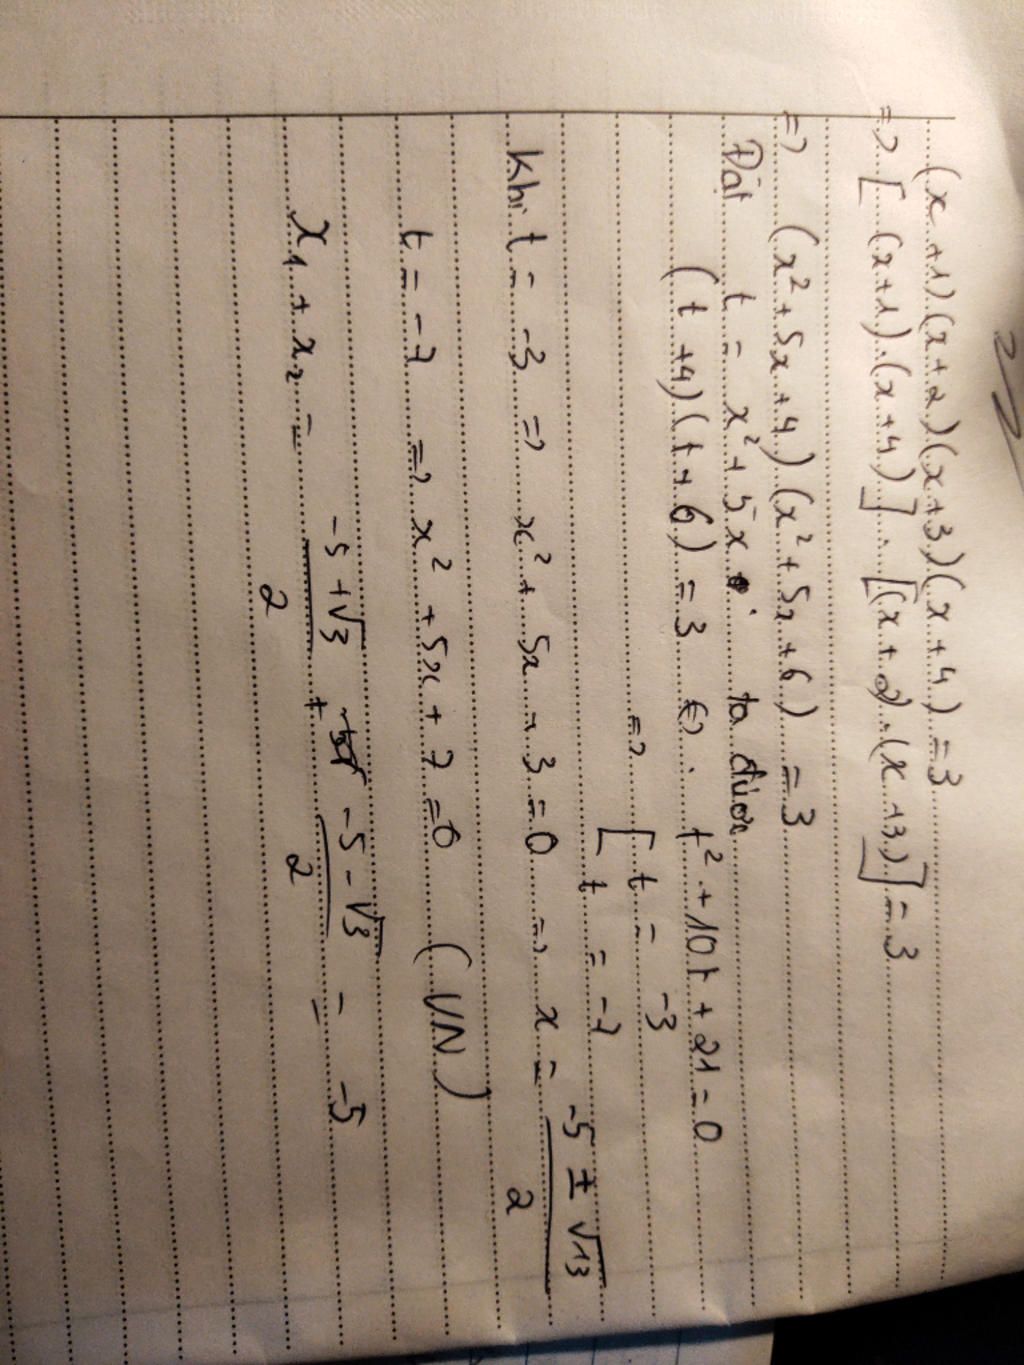 (x+1)(x+2)(x+3)(x+4) = 3
=> [(x+1).(x+4)].[(x+2).(x+3)] = 3
=> (x²+5x+4)(x²+5x+6) = 3
Đặt t = x²+5x. ta được
(t+4)(t+6) = 3 <=> t²+10t+21=0
=> [ t = -3
t = -7
Khi t = -3 => x²+5x-3=0 => x = (-5 ± √13)/2
t = -7 => x²+5x+7=0 (VN)
x₁+x₂ = (-5+√3)/2 + (-5-√3)/2 = -5